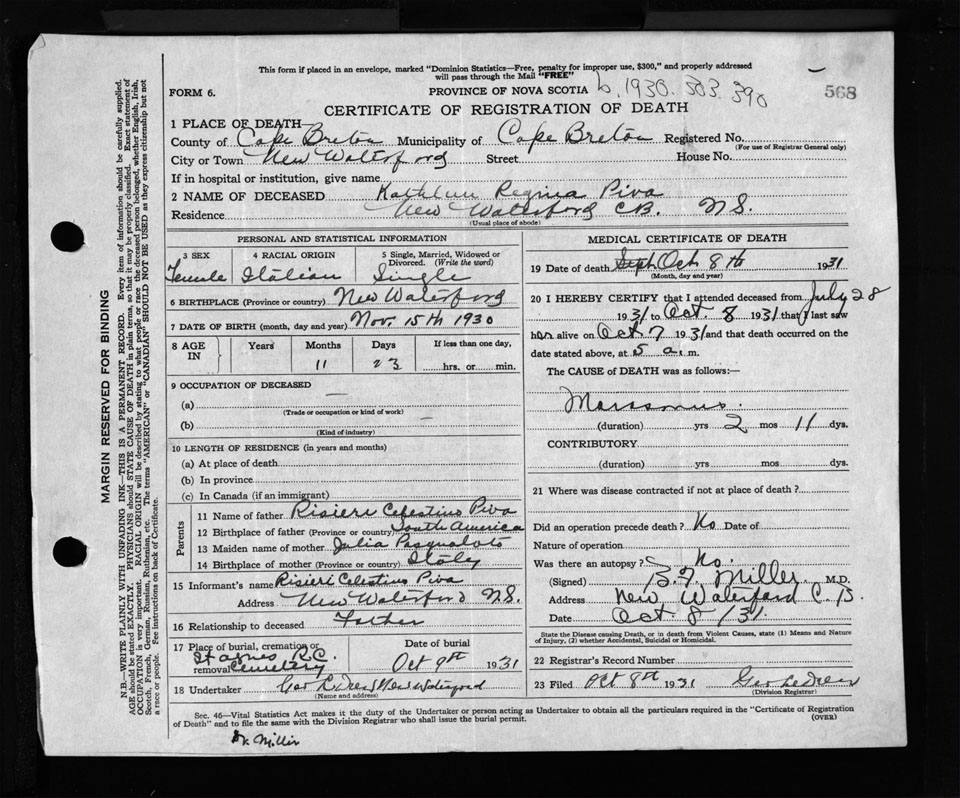 This form if placed in an envelope, marked "Dominion Statistics—Free, penalty for improper use, $300," and properly addressed
will pass through the Mail "FREE"
FORM 6.
PROVINCE OF NOVA SCOTIA b. 1930. 303. 390
568
CERTIFICATE OF REGISTRATION OF DEATH
1 PLACE OF DEATH—
County of Cape Breton Municipality of Cape Breton Registered No.
(For use of Registrar General only)
City or Town New Waterford Street House No.
If in hospital or institution, give name
2 NAME OF DECEASED Kathleen Regina Piva
Residence New Waterford C.B. N.S.
(Usual place of abode)
PERSONAL AND STATISTICAL INFORMATION
3 SEX 4 RACIAL ORIGIN 5 Single, Married, Widowed or
Divorced. (Write the word)
Female Italian Single
6 BIRTHPLACE (Province or country) New Waterford
7 DATE OF BIRTH (month, day and year) Nov. 15th 1930
8 AGE IN Years Months Days If less than one day,
11 23 hrs. or min.
9 OCCUPATION OF DECEASED
(a) —
(Trade or occupation or kind of work)
(b) —
(Kind of industry)
10 LENGTH OF RESIDENCE (in years and months)
(a) At place of death
(b) In province
(c) In Canada (if an immigrant)
Parents
11 Name of father Risieri Celestino Piva
12 Birthplace of father (Province or country) South America
13 Maiden name of mother Julia Pasqualoto
14 Birthplace of mother (Province or country) Italy
15 Informant's name Risieri Celestino Piva
Address New Waterford N.S.
16 Relationship to deceased Father
17 Place of burial, cremation or Date of burial
St Agnes R.C.
removal Cemetery Oct 9th 1931
18 Undertaker Geo LeDrew New Waterford
(Name and address)
MEDICAL CERTIFICATE OF DEATH
19 Date of death Sept Oct 8th 1931
(Month, day and year)
20 I HEREBY CERTIFY that I attended deceased from July 28
1931 to Oct. 8 1931 that I last saw
her alive on Oct 7 1931 and that death occurred on the
date stated above, at 5 a.m.
The CAUSE of DEATH was as follows:—
Marasmus.
(duration) yrs 2 mos 11 dys.
CONTRIBUTORY
(duration) yrs mos dys.
21 Where was disease contracted if not at place of death?
Did an operation precede death? No Date of
Nature of operation
Was there an autopsy? No.
(Signed) Miller M.D.
Address New Waterford C.B.
Date Oct. 8/31.
State the Disease causing Death, or in death from Violent Causes, state (1) Means and Nature
of Injury, (2) whether Accidental, Suicidal or Homicidal.
22 Registrar's Record Number
23 Filed Oct 8th 1931 Geo LeDrew
(Division Registrar)
Sec. 46—Vital Statistics Act makes it the duty of the Undertaker or person acting as Undertaker to obtain all the particulars required in the "Certificate of Registration
of Death" and to file the same with the Division Registrar who shall issue the burial permit.
(OVER)
Dr. Miller
MARGIN RESERVED FOR BINDING
N.B.—WRITE PLAINLY WITH UNFADING INK—THIS IS A PERMANENT RECORD. Every item of information should be carefully supplied.
AGE should be stated EXACTLY. PHYSICIANS should STATE CAUSE OF DEATH in plain terms, so that it may be properly classified. Exact statement of
OCCUPATION is very important. RACIAL ORIGIN will be described by stating to what people or race the deceased person belonged, whether English, Irish,
Scotch, French, German, Russian, Ruthenian, etc. The terms "AMERICAN" or "CANADIAN" SHOULD NOT BE USED as they express citizenship but not
a race or people. Fee instructions on back of Certificate.